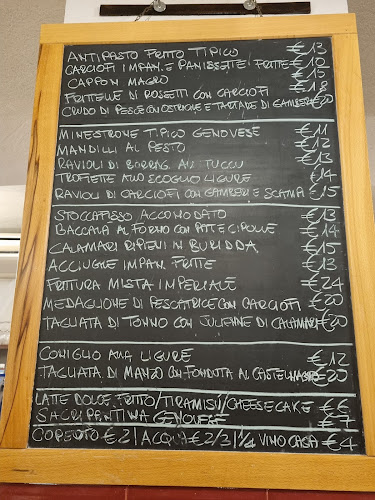 ANTIPASTO FRITTO TIPICO €13
CARCIOFI IMPAN. E PANISSETTE FRITTE €10
CAPPON MAGRO €15
FRITTELLE DI ROSSETTI CON CARCIOFI €18
CRUDO DI PESCE CON OSTRICHE E TARTARE DI GAMBERI €20
MINESTRONE TIPICO GENOVESE €11
MANDILLI AL PESTO €12
RAVIOLI DI BORRAG. AU TUCCU €13
TROFIETTE ALLO SCOGLIO LIGURE €14
RAVIOLI DI CARCIOFI CON GAMBERI E SCAMPI €15
STOCCAFISSO ACCOMODATO €13
BACCALÀ AL FORNO CON PATATE CIPOLLE €14
CALAMARI RIPIENI IN BURIDDA €15
ACCIUGHE IMPAN. FRITTE €13
FRITTURA MISTA IMPERIALE €24
MEDAGLIONE DI PESCATRICE CON CARCIOFI €20
TAGLIATA DI TONNO CON JULIENNE DI CALAMARI €20
CONIGLIO ALLA LIGURE €12
TAGLIATA DI MANZO CON FONDUTA AL CASTELMAGNO €20
LATTE DOLCE FRITTO/TIRAMISÙ/CHEESECAKE €6
SACRIPANTINA GENOVESE €7
COPERTO €2 | ACQUA €2/3 | 1/4 VINO CASA €4